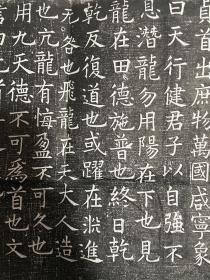 貞首出庶物萬國咸寧象
曰天行健君子以自強不
息潛龍勿用陽在下也見
龍在田德施普也終日乾
乾反復道也或躍在淵進
无咎也飛龍在天大人造
也亢龍有悔盈不可久也
用九天德不可為首也文